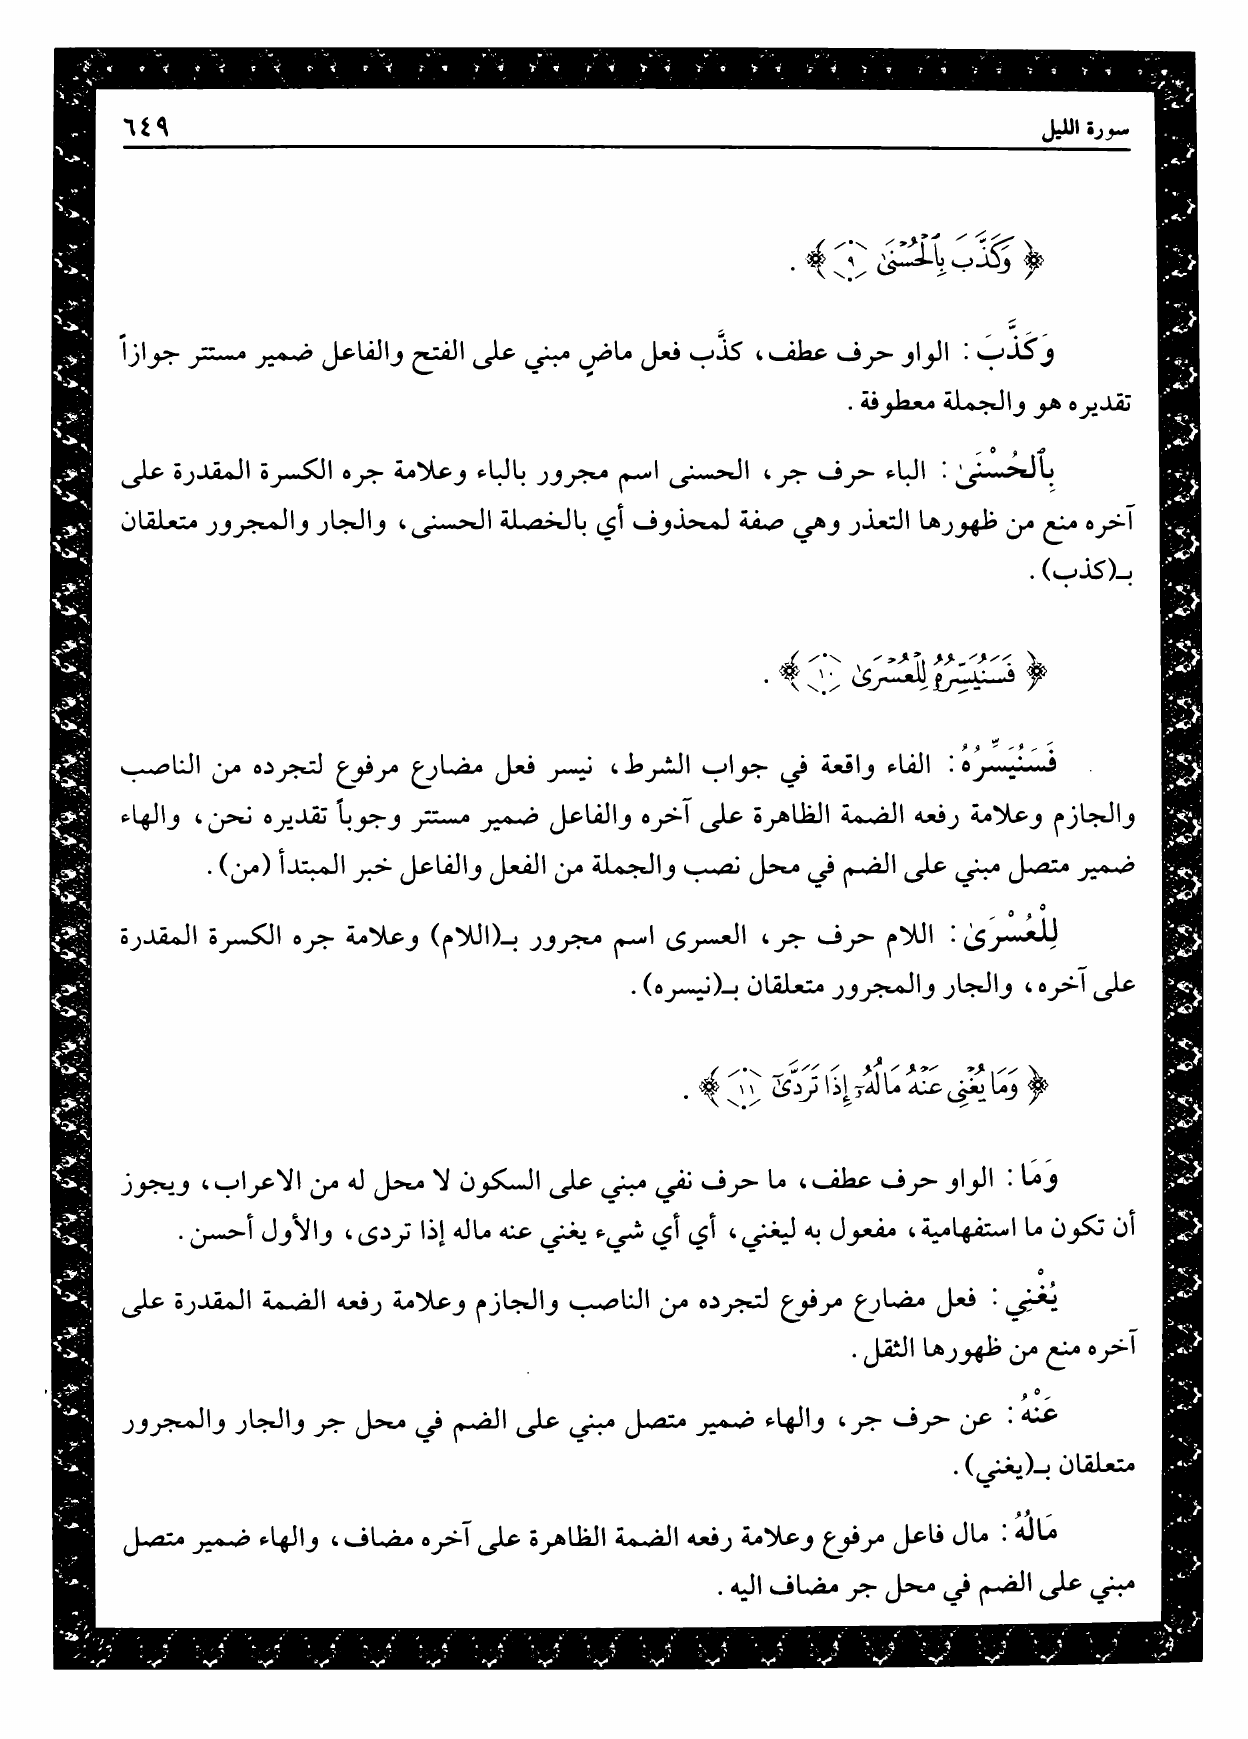 سورة الليل ٦٤٩
﴿ وَكَذَّبَ بِٱلْحُسْنَىٰ ٩ ﴾ .
وَكَذَّبَ : الواو حرف عطف، كذَّب فعل ماضٍ مبني على الفتح والفاعل ضمير مستتر جوازاً
تقديره هو والجملة معطوفة .
بِٱلحُسْنَىٰ : الباء حرف جر، الحسنى اسم مجرور بالباء وعلامة جره الكسرة المقدرة على
آخره منع من ظهورها التعذر وهي صفة لمحذوف أي بالخصلة الحسنى، والجار والمجرور متعلقان
بـ(كذب) .
﴿ فَسَنُيَسِّرُهُۥ لِلْعُسْرَىٰ ١٠ ﴾ .
فَسَنُيَسِّرُهُ : الفاء واقعة في جواب الشرط، نيسر فعل مضارع مرفوع لتجرده من الناصب
والجازم وعلامة رفعه الضمة الظاهرة على آخره والفاعل ضمير مستتر وجوباً تقديره نحن، والهاء
ضمير متصل مبني على الضم في محل نصب والجملة من الفعل والفاعل خبر المبتدأ (من) .
لِلْعُسْرَىٰ : اللام حرف جر، العسرى اسم مجرور بـ(اللام) وعلامة جره الكسرة المقدرة
على آخره، والجار والمجرور متعلقان بـ(نيسره) .
﴿ وَمَا يُغْنِى عَنْهُ مَالُهُۥٓ إِذَا تَرَدَّىٰٓ ١١ ﴾ .
وَمَا : الواو حرف عطف، ما حرف نفي مبني على السكون لا محل له من الاعراب، ويجوز
أن تكون ما استفهامية، مفعول به ليغني، أي أي شيء يغني عنه ماله إذا تردى، والأول أحسن .
يُغْنِي : فعل مضارع مرفوع لتجرده من الناصب والجازم وعلامة رفعه الضمة المقدرة على
آخره منع من ظهورها الثقل .
عَنْهُ : عن حرف جر، والهاء ضمير متصل مبني على الضم في محل جر والجار والمجرور
متعلقان بـ(يغني) .
مَالُهُ : مال فاعل مرفوع وعلامة رفعه الضمة الظاهرة على آخره مضاف، والهاء ضمير متصل
مبني على الضم في محل جر مضاف اليه .